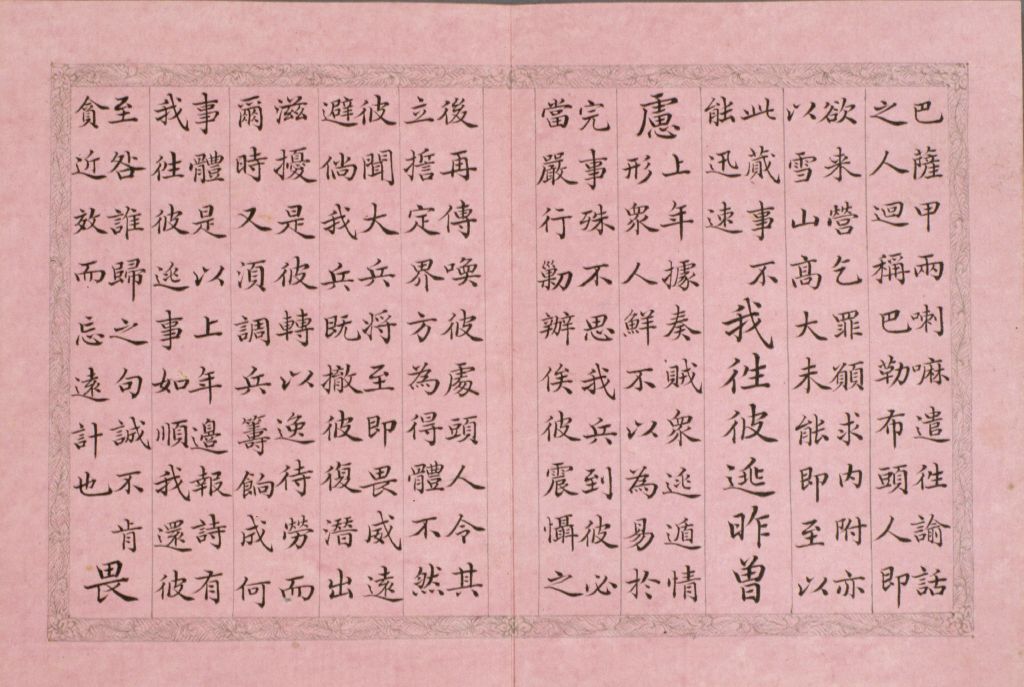 巴薩甲兩喇嘛遣徃諭話
之人迴稱巴勒布頭人即
欲来營乞罪願求内附亦
以雪山髙大未能即至以
此蕆事不
能迅速
我徃彼逃昨曾
慮
上年據奏賊衆逃遁情
形衆人鮮不以為易於
完事殊不思我兵到彼必
當嚴行勦辦俟彼震懾之
後再傳喚彼處頭人令其
立誓定界方為得體不然
彼聞大兵将至即畏威遠
避倘我兵既撤彼復潛出
滋擾是彼轉以逸待勞而
爾時又湏調兵籌餉成何
事體是以上年邊報詩有
我徃彼逃事如順我還彼
至咎誰歸之句誠不肯
貪近效而忘遠計也
畏